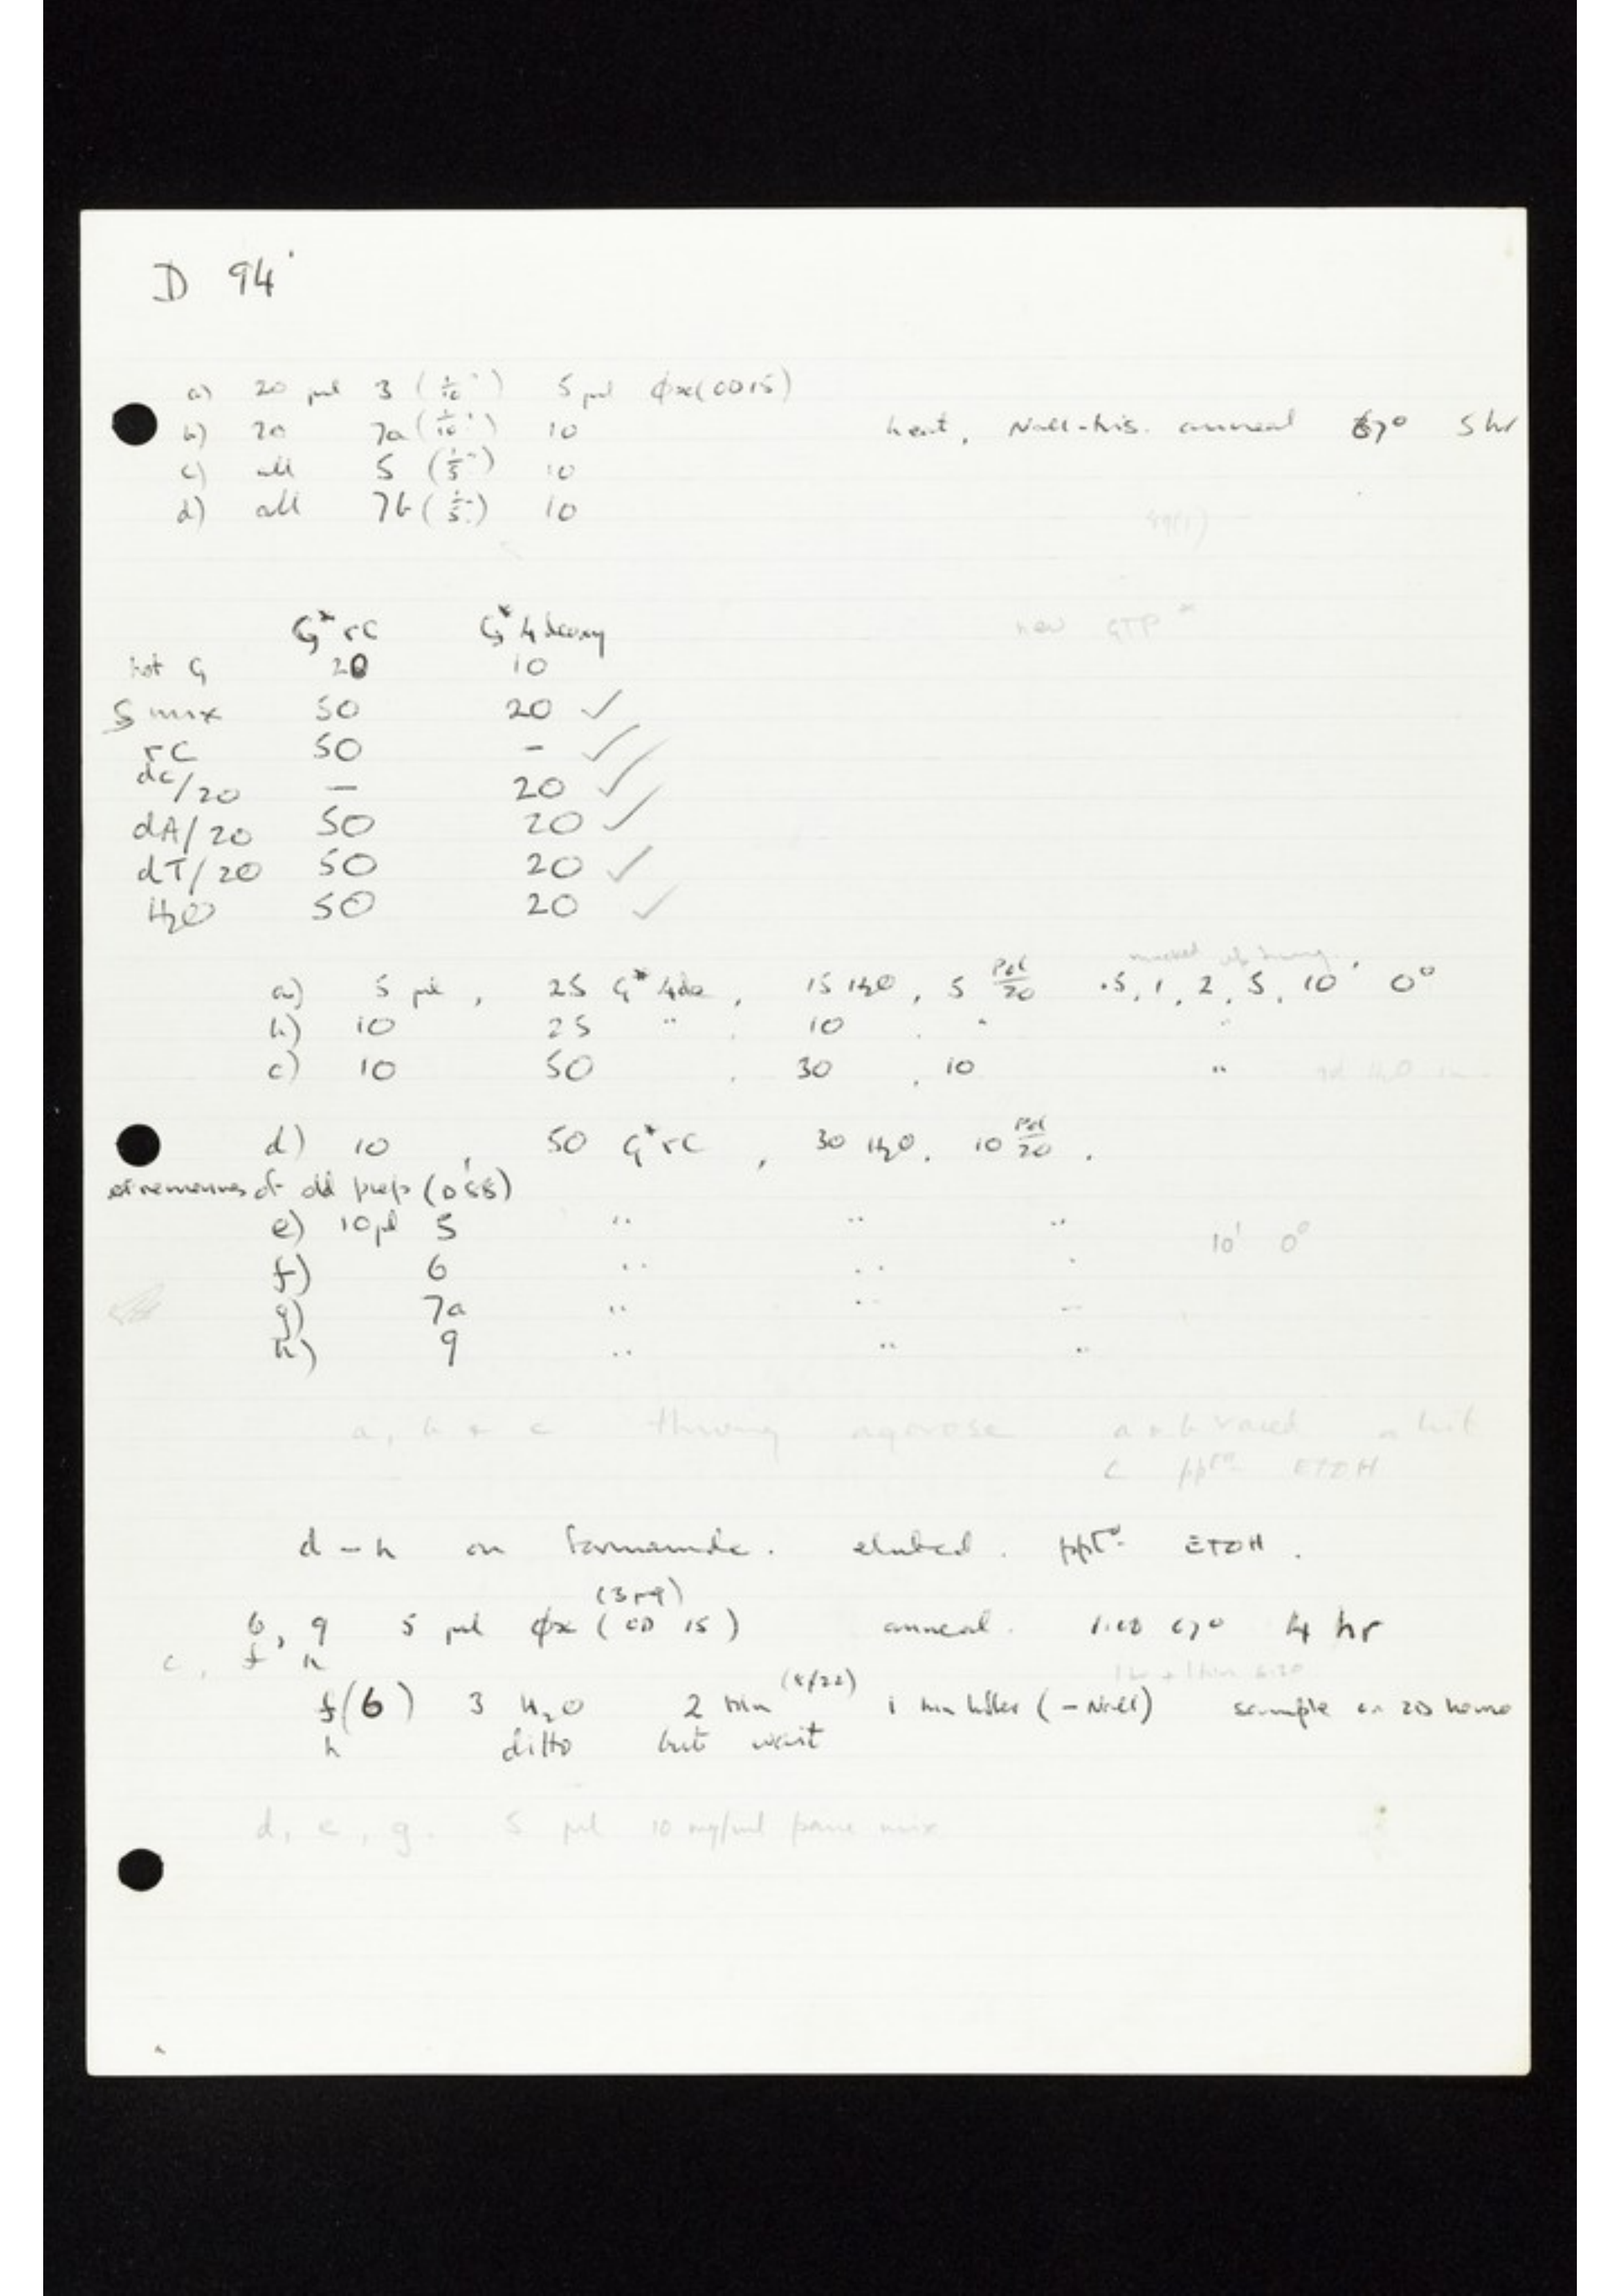 D 94
a) 20 µl 3 (1/10) 5 µl φx (OD 15)
b) 20 7a (1/10) 10 heat, NaCl-tris. anneal 67° 5 hr
c) all 5 (1/5) 10
d) all 7b (1/5) 10
G* rC G* 4 deoxy
new GTP*
hot G 20 10
S mix 50 20 ✓
rC 50 – ✓
dC/20 – 20 ✓
dA/20 50 20 ✓
dT/20 50 20 ✓
H2O 50 20 ✓
a) 5 µl, 25 G* 4de, 15 H2O, 5 Pol/20 .5, 1, 2, 5, 10' 0°
b) 10 25 " 10 " "
c) 10 50 30 10 "
d) 10, 50 G* rC, 30 H2O, 10 Pol/20.
of old prep
e) 10 µl 5 " " " 10' 0°
f) 6 " " "
g) 7a " " "
h) 9 " " "
a, b + c through agarose a + b
c pptd ETOH
d – h on formamide. eluted. pptd ETOH.
(3 µg)
6, 9 5 µl φx (OD 15) anneal. 67° 4 hr
c, f h
f(6) 3 H2O 2 Hin 1 (– NaCl) sample on 2D homo
h ditto but wait
d, e, g. 5 µl 10 mg/ml mix